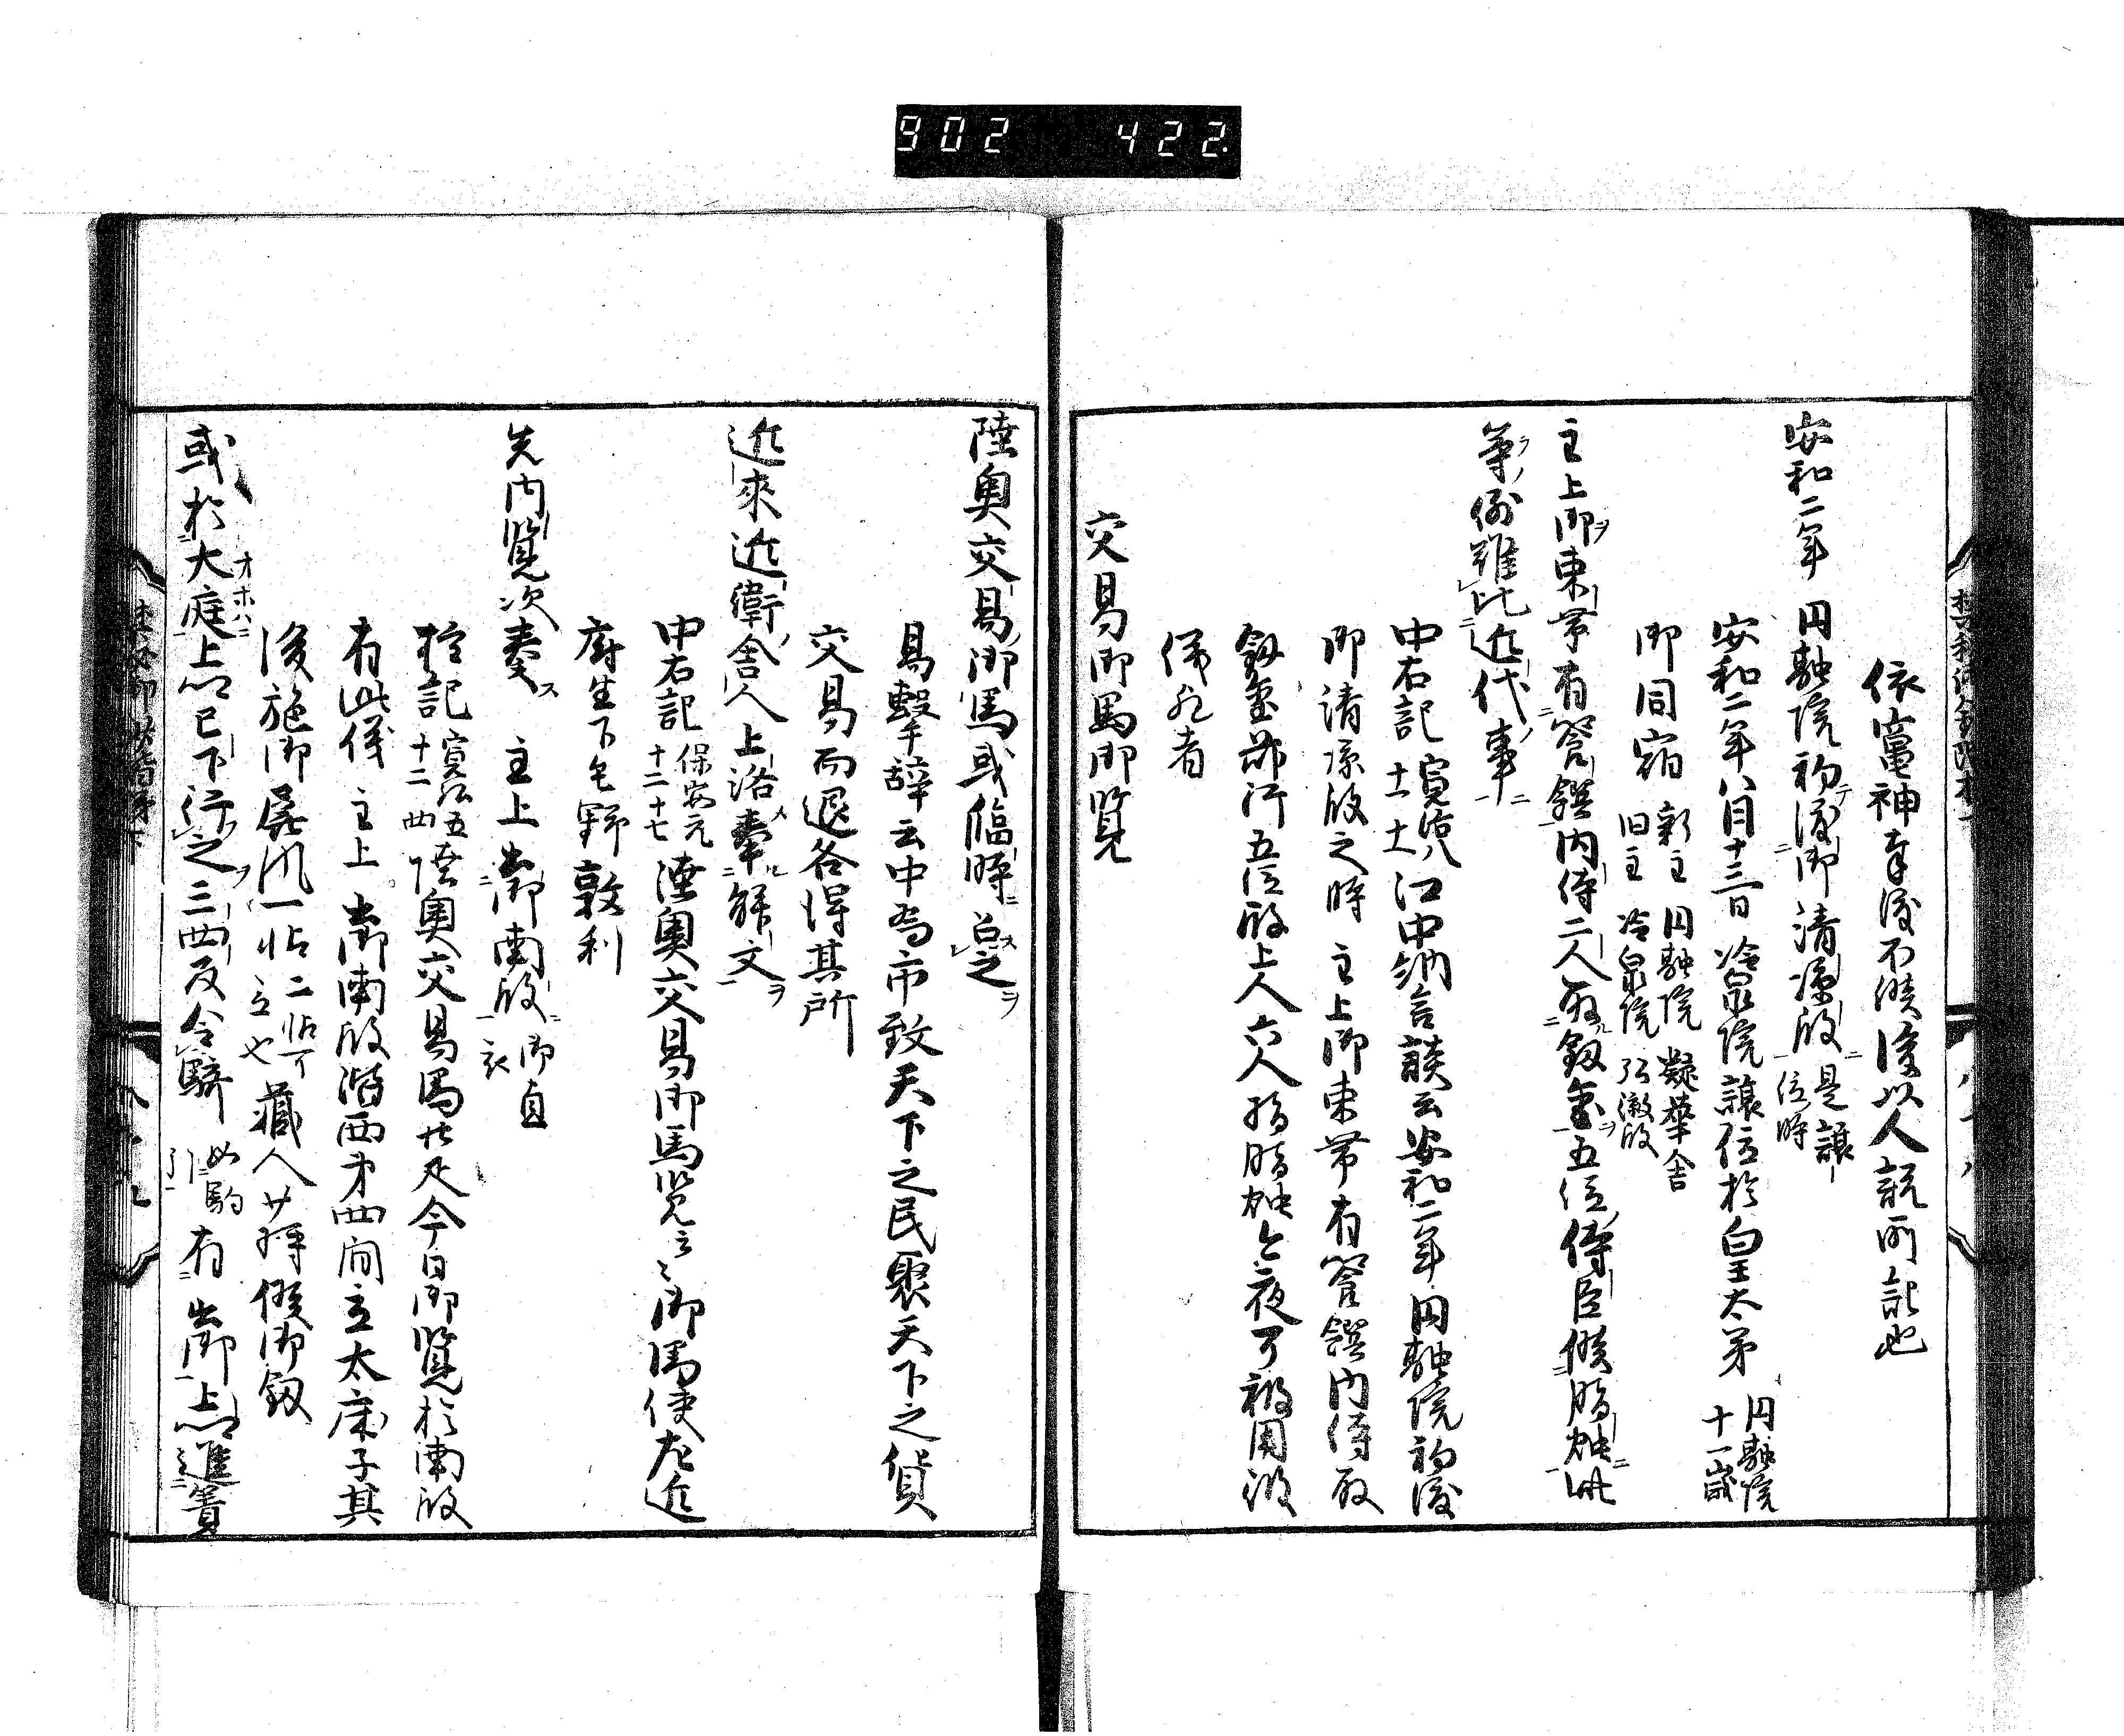 902 422.
依竈神奉渡不候後以人説所記也
安和二年 円融院初渡御清凉殿 是譲位時
安和二年八月十三日冷泉院譲位於皇太弟 円融院十一歳
御同宿 新主 円融院 凝華舎 旧主 冷泉院 弘徽殿
主上御束帯有警蹕内侍二人取釼璽五位侍臣候脂燭此
等例雖比近代事
中右記 江中納言談云安和二年円融院初渡
御清凉殿之時 主上御束帯有警蹕内侍取
釼璽前行五位殿上人六人指脂燭今夜可被用彼
例者
交易御馬御覧
陸奥交易御馬或臨時召之
易繋辞云中為市致天下之民聚天下之貨
交易而退各得其所
近来近衛舎人上洛奉解文
中右記 保安元十二十七 陸奥交易御馬覧云々御馬使左近
府生下毛野敦利
先内覧次奏 主上出御南殿 御直衣
権記 寛弘五十二四 陸奥交易馬廿疋今日御覧於南殿
有此儀 主上出御南殿階西第四間立太床子其
後施御屏風一帖 二帖可立也 蔵人少将候御釼
或於大庭上卿已下行之三四反令騎 如駒引 有出御上卿進簀